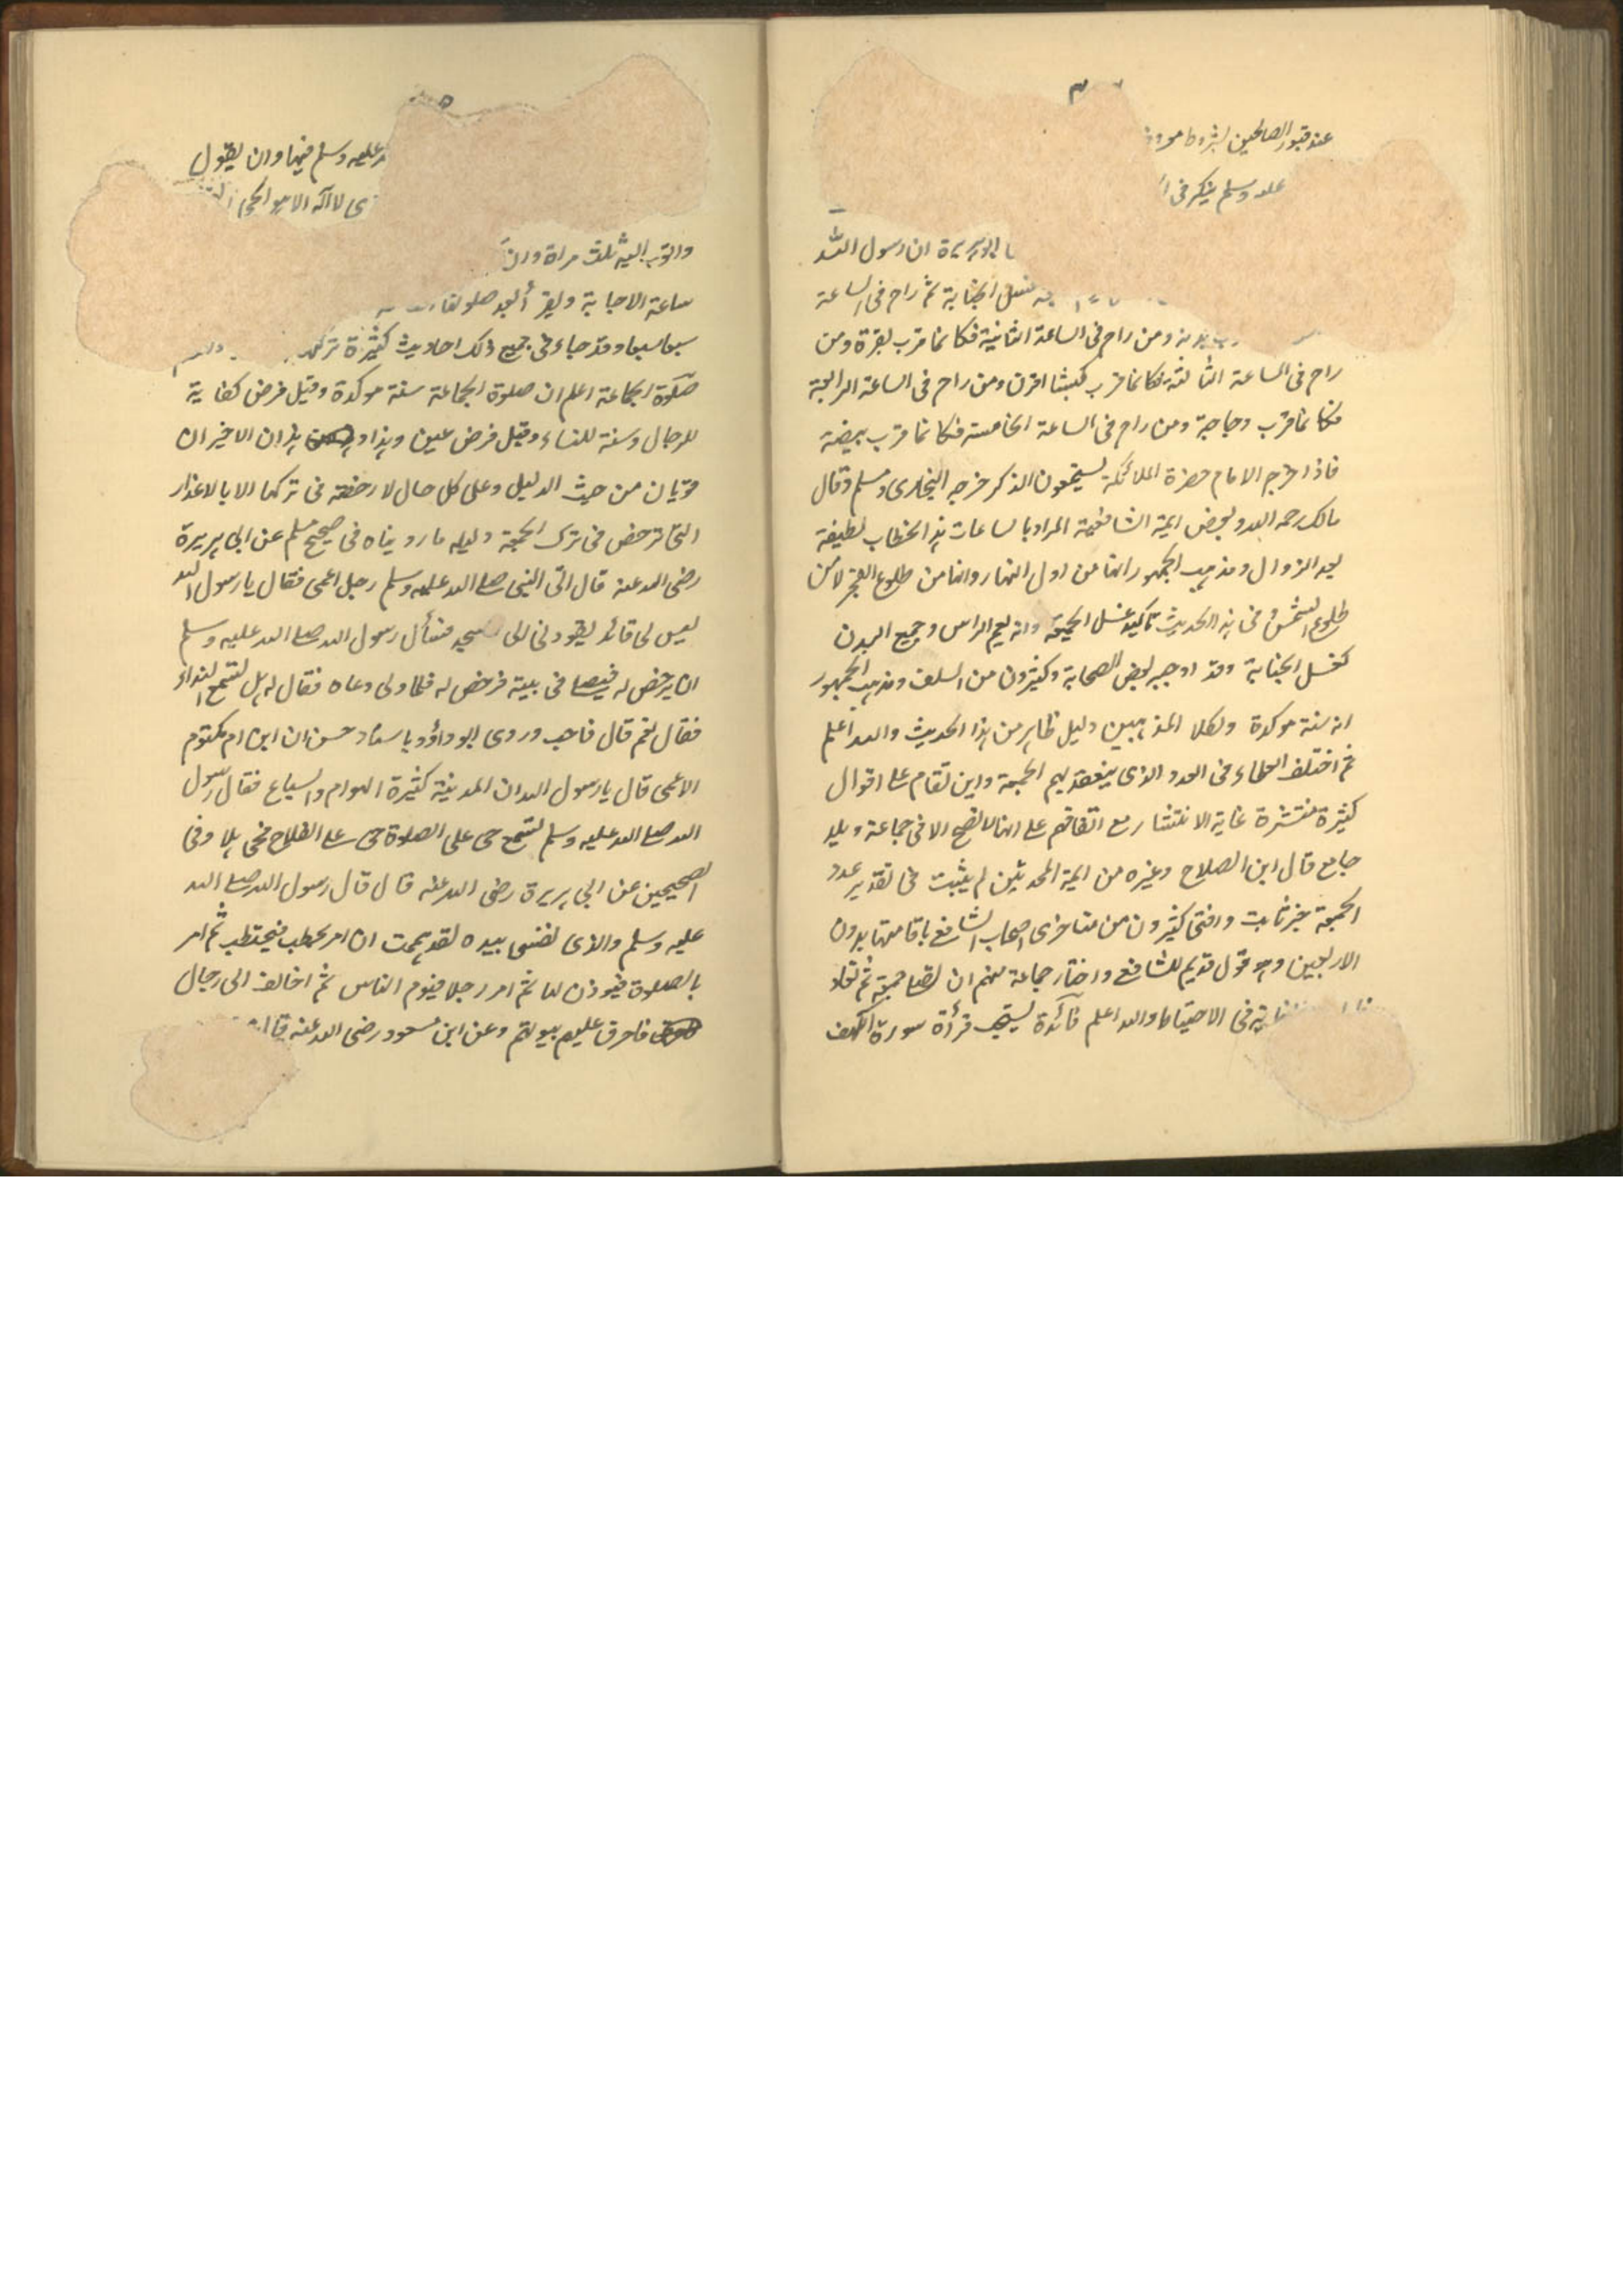 عند قبور الصالحين بشروط
عليه وسلم ينكر فى
ابو هريرة ان رسول الله
غسل الجنابة ثم راح فى الساعة
بدنة ومن راح فى الساعة الثانية فكانما قرب بقرة ومن
راح فى الساعة الثالثة فكانما قرب كبشا اقرن ومن راح فى الساعة الرابعة
فكانما قرب دجاجة ومن راح فى الساعة الخامسة فكانما قرب بيضة
فاذا خرج الامام حضرة الملائكة يستمعون الذكر خرجه البخارى ومسلم وقال
مالك رحمه الله وبعض ايمة الشافعية المراد بالساعات هذا لحظاب لطيفة
بعد الزوال ومذهب الجمهور انها من اول النهار وانها من طلوع الفجر لا من
طلوع الشمس وفى هذا الحديث تاكيد غسل الجمعة وانه يعم الراس وجميع البدن
كغسل الجنابة وقد اوجبه بعض الصحابة وكثيرون من السلف ومذهب الجمهور
انه سنة موكدة ولكلا المذهبين دليل ظاهر من هذا الحديث والله اعلم
ثم اختلف العلماء فى العدد الذى ينعقد بهم الجمعة واين تقام على اقوال
كثيرة منتشرة غاية الانتشار مع اتفاقهم على انها لا تصح الا فى جماعة وبلد
جامع قال ابن الصلاح وغيره من ايمة المحدثين لم يثبت فى تقدير عدد
الجمعة خبر ثابت وافتى كثيرون من متاخرى اصحاب الشافع باقامتها بدون
الاربعين وهو قول قديم للشافع واختار جماعة منهم ان تصلى جمعة ثم تعاد
فى الاحتياط والله اعلم فائدة يستحب قرأة سورة الكهف
عليه وسلم فيها وان يقول
لا اله الا هو الحى
واتوب اليه ثلث مراة وان
ساعة الاجابة ويقرأ بعد صلو
سبعا سبعا وقد جاء فى جميع ذلك احاديث كثيرة
صلوة الجماعة اعلم ان صلوة الجماعة سنة موكدة وقيل فرض كفاية
للرجال وسنة للنساء وقيل فرض عين وهذا هذان الاخيران
قويان من حيث الدليل وعلى كل حال لا رخصة فى تركها الا بالاعذار
التى ترخص فى ترك الجمعة دليله ما رويناه فى صحيح مسلم عن ابى هريرة
رضى الله عنه قال اتى النبى صلى الله عليه وسلم رجل اعمى فقال يا رسول الله
ليس لى قائد يقودنى الى مسجد فسأل رسول الله صلى الله عليه وسلم
ان يرخص له فيصلى فى بيته فرخص له فلما ولى دعاه فقال له هل تسمع النداء
فقال نعم قال فاجب وروى ابو داؤد باسناد حسن ان ابن ام مكتوم
الاعمى قال يا رسول الله ان المدينة كثيرة الهوام والسباع فقال رسول
الله صلى الله عليه وسلم تسمع حى على الصلوة حى على الفلاح فحى هلا وفى
الصحيحين عن ابى هريرة رضى الله عنه قال قال رسول الله صلى الله
عليه وسلم والذى نفسى بيده لقد هممت ان امر بحطب فيحتطب ثم امر
بالصلوة فيوذن لها ثم امر رجلا فيوم الناس ثم اخالف الى رجال
فاحرق عليهم بيوتهم وعن ابن مسعود رضى الله عنه قال